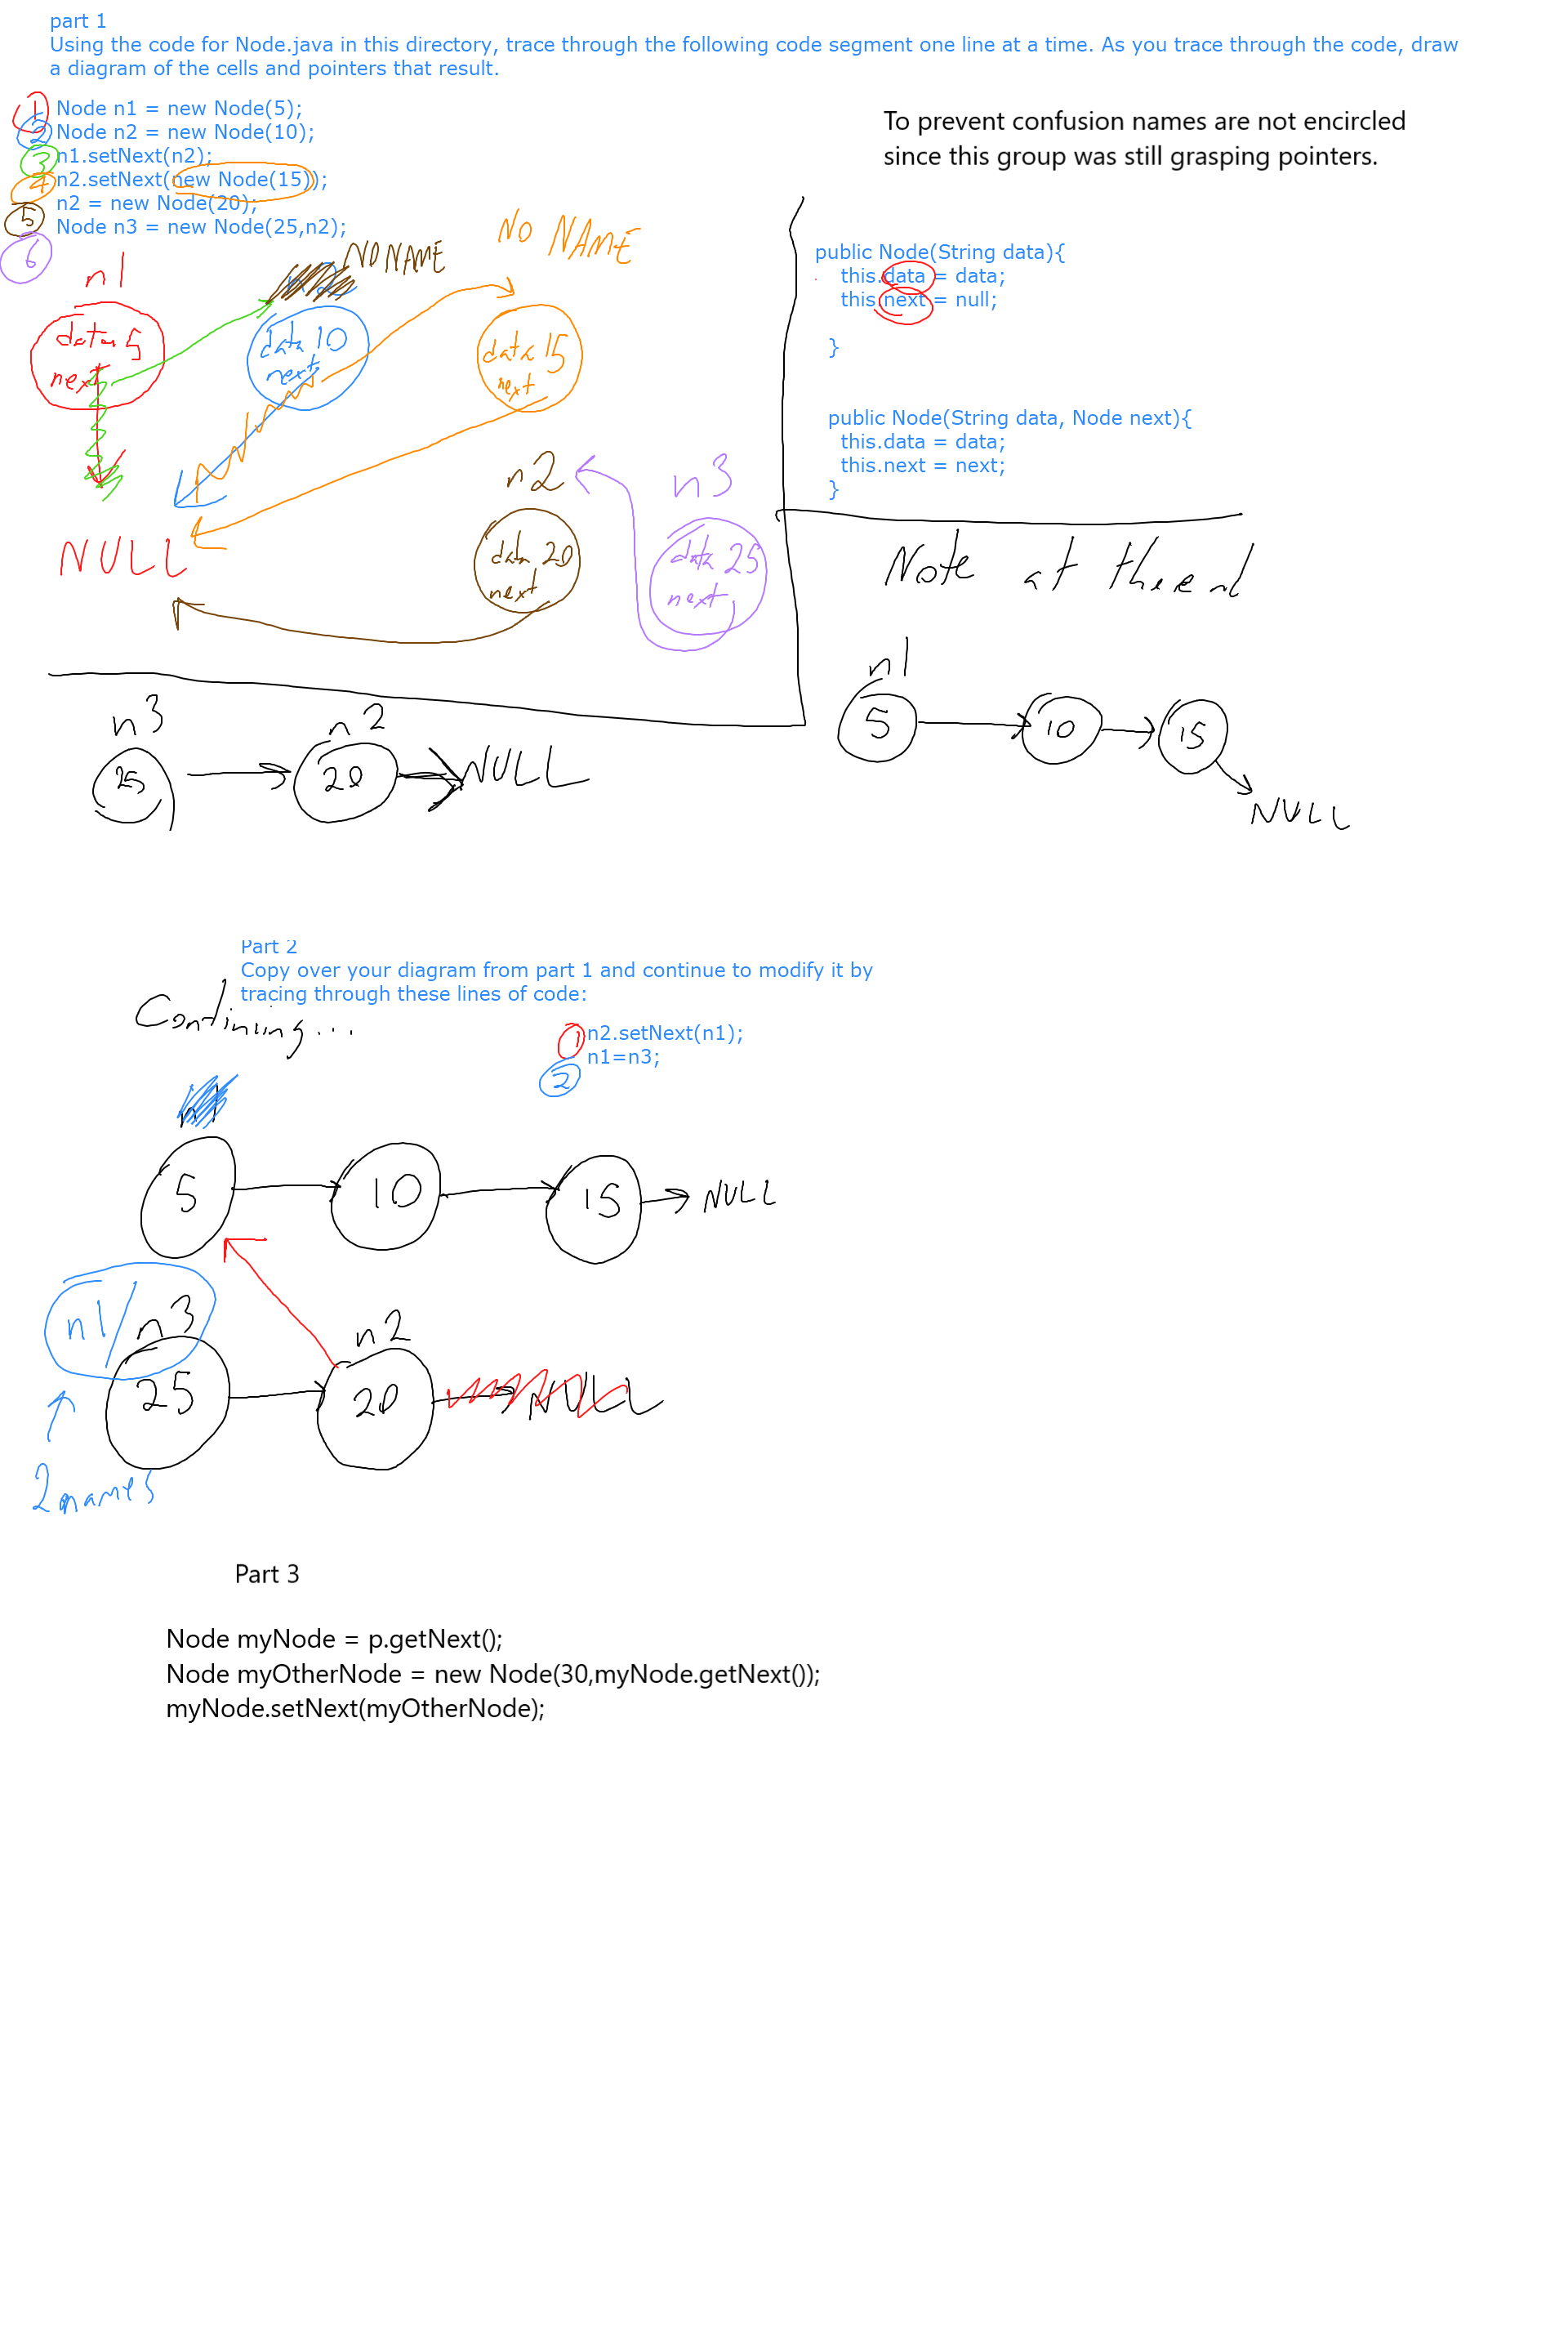 part 1
Using the code for Node.java in this directory, trace through the following code segment one line at a time. As you trace through the code, draw
a diagram of the cells and pointers that result.
1 Node n1 = new Node(5);
2 Node n2 = new Node(10);
3 n1.setNext(n2);
4 n2.setNext(new Node(15));
5 n2 = new Node(20);
6 Node n3 = new Node(25,n2);
To prevent confusion names are not encircled
since this group was still grasping pointers.
n1
NO NAME
NO NAME
data 5
next
data 10
next
data 15
next
NULL
n2
n3
data 20
next
data 25
next
public Node(String data){
this.data = data;
this.next = null;
}
public Node(String data, Node next){
this.data = data;
this.next = next;
}
Note at the end
n1
5
10
15
NULL
n3
n2
25
20
NULL
Part 2
Copy over your diagram from part 1 and continue to modify it by
tracing through these lines of code:
Contining...
1 n2.setNext(n1);
2 n1=n3;
n1
5
10
15
NULL
n1/n3
n2
25
20
NULL
2 names
Part 3
Node myNode = p.getNext();
Node myOtherNode = new Node(30,myNode.getNext());
myNode.setNext(myOtherNode);